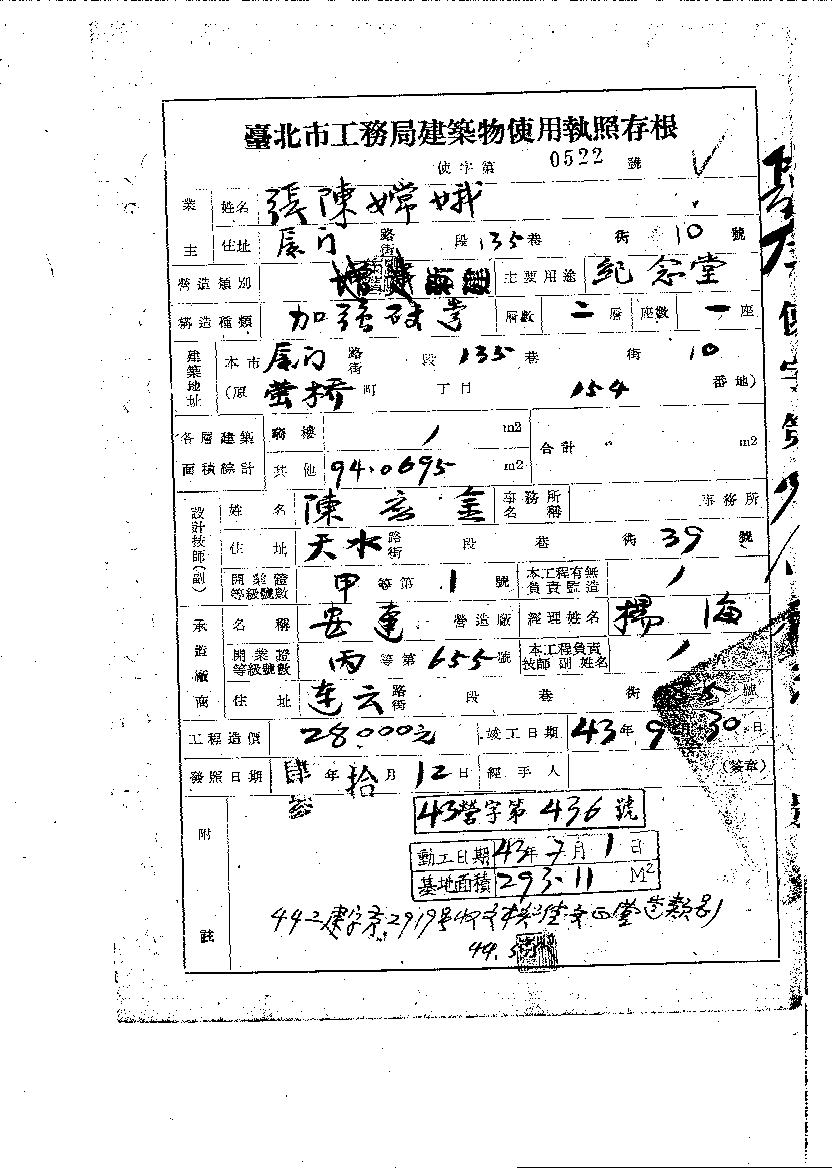 臺北市工務局建築物使用執照存根
使字第 0522 號
業主 姓名 張陳嫦娥
住址 厦门 路街 段 135 巷 街 10 號
營造類別 增建 主要用途 紀念堂
構造種類 加强磚造 層數 二 層 座數 一 座
建築地址 本市 厦门 路街 段 135 巷 街 10
(原 螢橋 町 丁目 154 番地)
各層建築面積綜計 騎樓 / m2 合計 〃 m2
其他 94.0695 m2
設計技師(副) 姓名 陳 金 事務所名稱 事務所
住址 天水 路街 段 巷 街 39 號
開業證等級號數 甲 等第 1 號 本工程有無負責監造 /
承造廠商 名稱 安達 營造廠 經理姓名 楊海
開業證等級號數 丙 等第 655 號 本工程負責技師副姓名 /
住址 連云 路街 段 巷 街 5 號
工程造價 28,000元 竣工日期 43年 9 30日
發照日期 肆叁 年 拾 月 12日 經手人 (簽章)
附註
43營字第 436 號
動工日期 43年 7月 1日
基地面積 293.11 M2
44.5